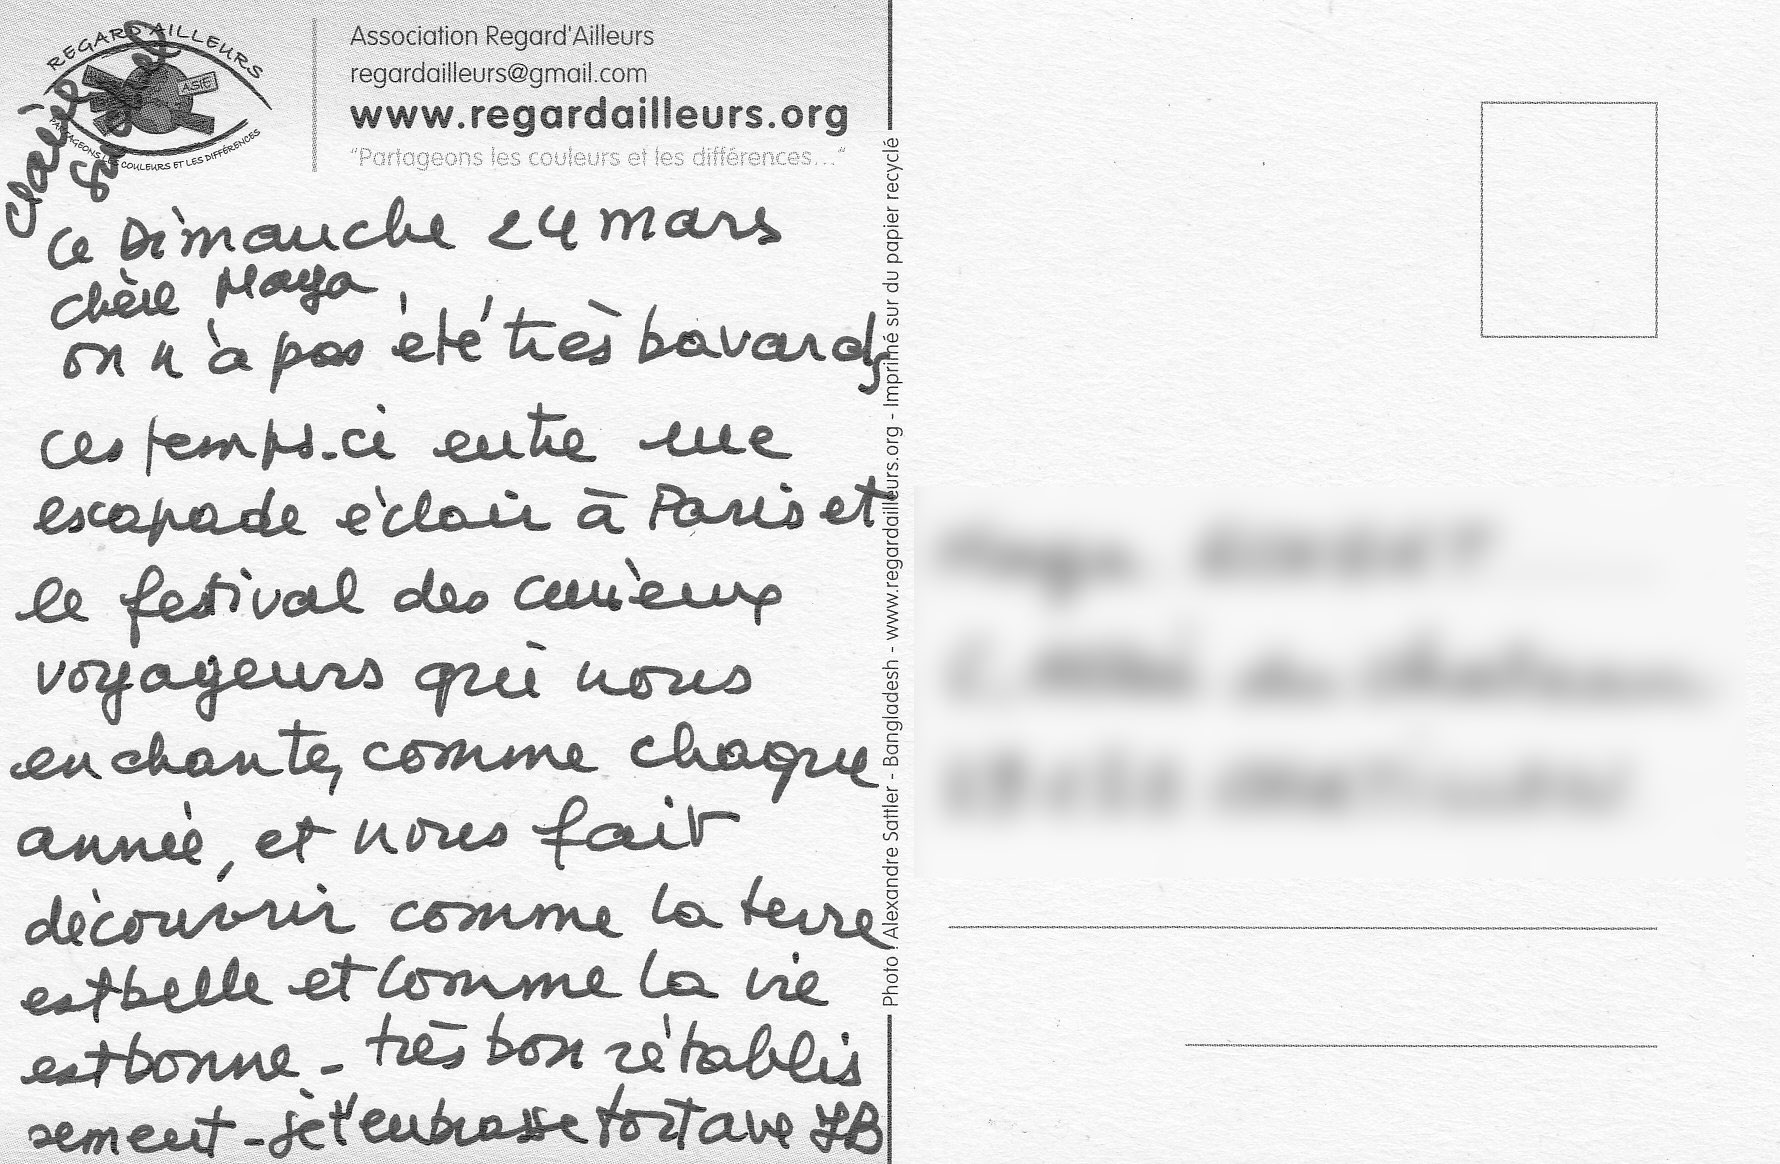 REGARD'AILLEURS
ASIE
PARTAGEONS LES COULEURS ET LES DIFFÉRENCES
Association Regard'Ailleurs
regardailleurs@gmail.com
www.regardailleurs.org
"Partageons les couleurs et les différences..."
ce Dimanche 24 mars
chère Maya,
on n'a pas été très bavards
ces temps-ci entre une
escapade éclair à Paris et
le festival des curieux
voyageurs qui nous
enchante, comme chaque
année, et nous fait
découvrir comme la terre
est belle et comme la vie
est bonne - très bon rétablis
sement - je t'embrasse fort avec JB
Claire
Photo : Alexandre Sattler - Bangladesh - www.regardailleurs.org - Imprimé sur du papier recyclé